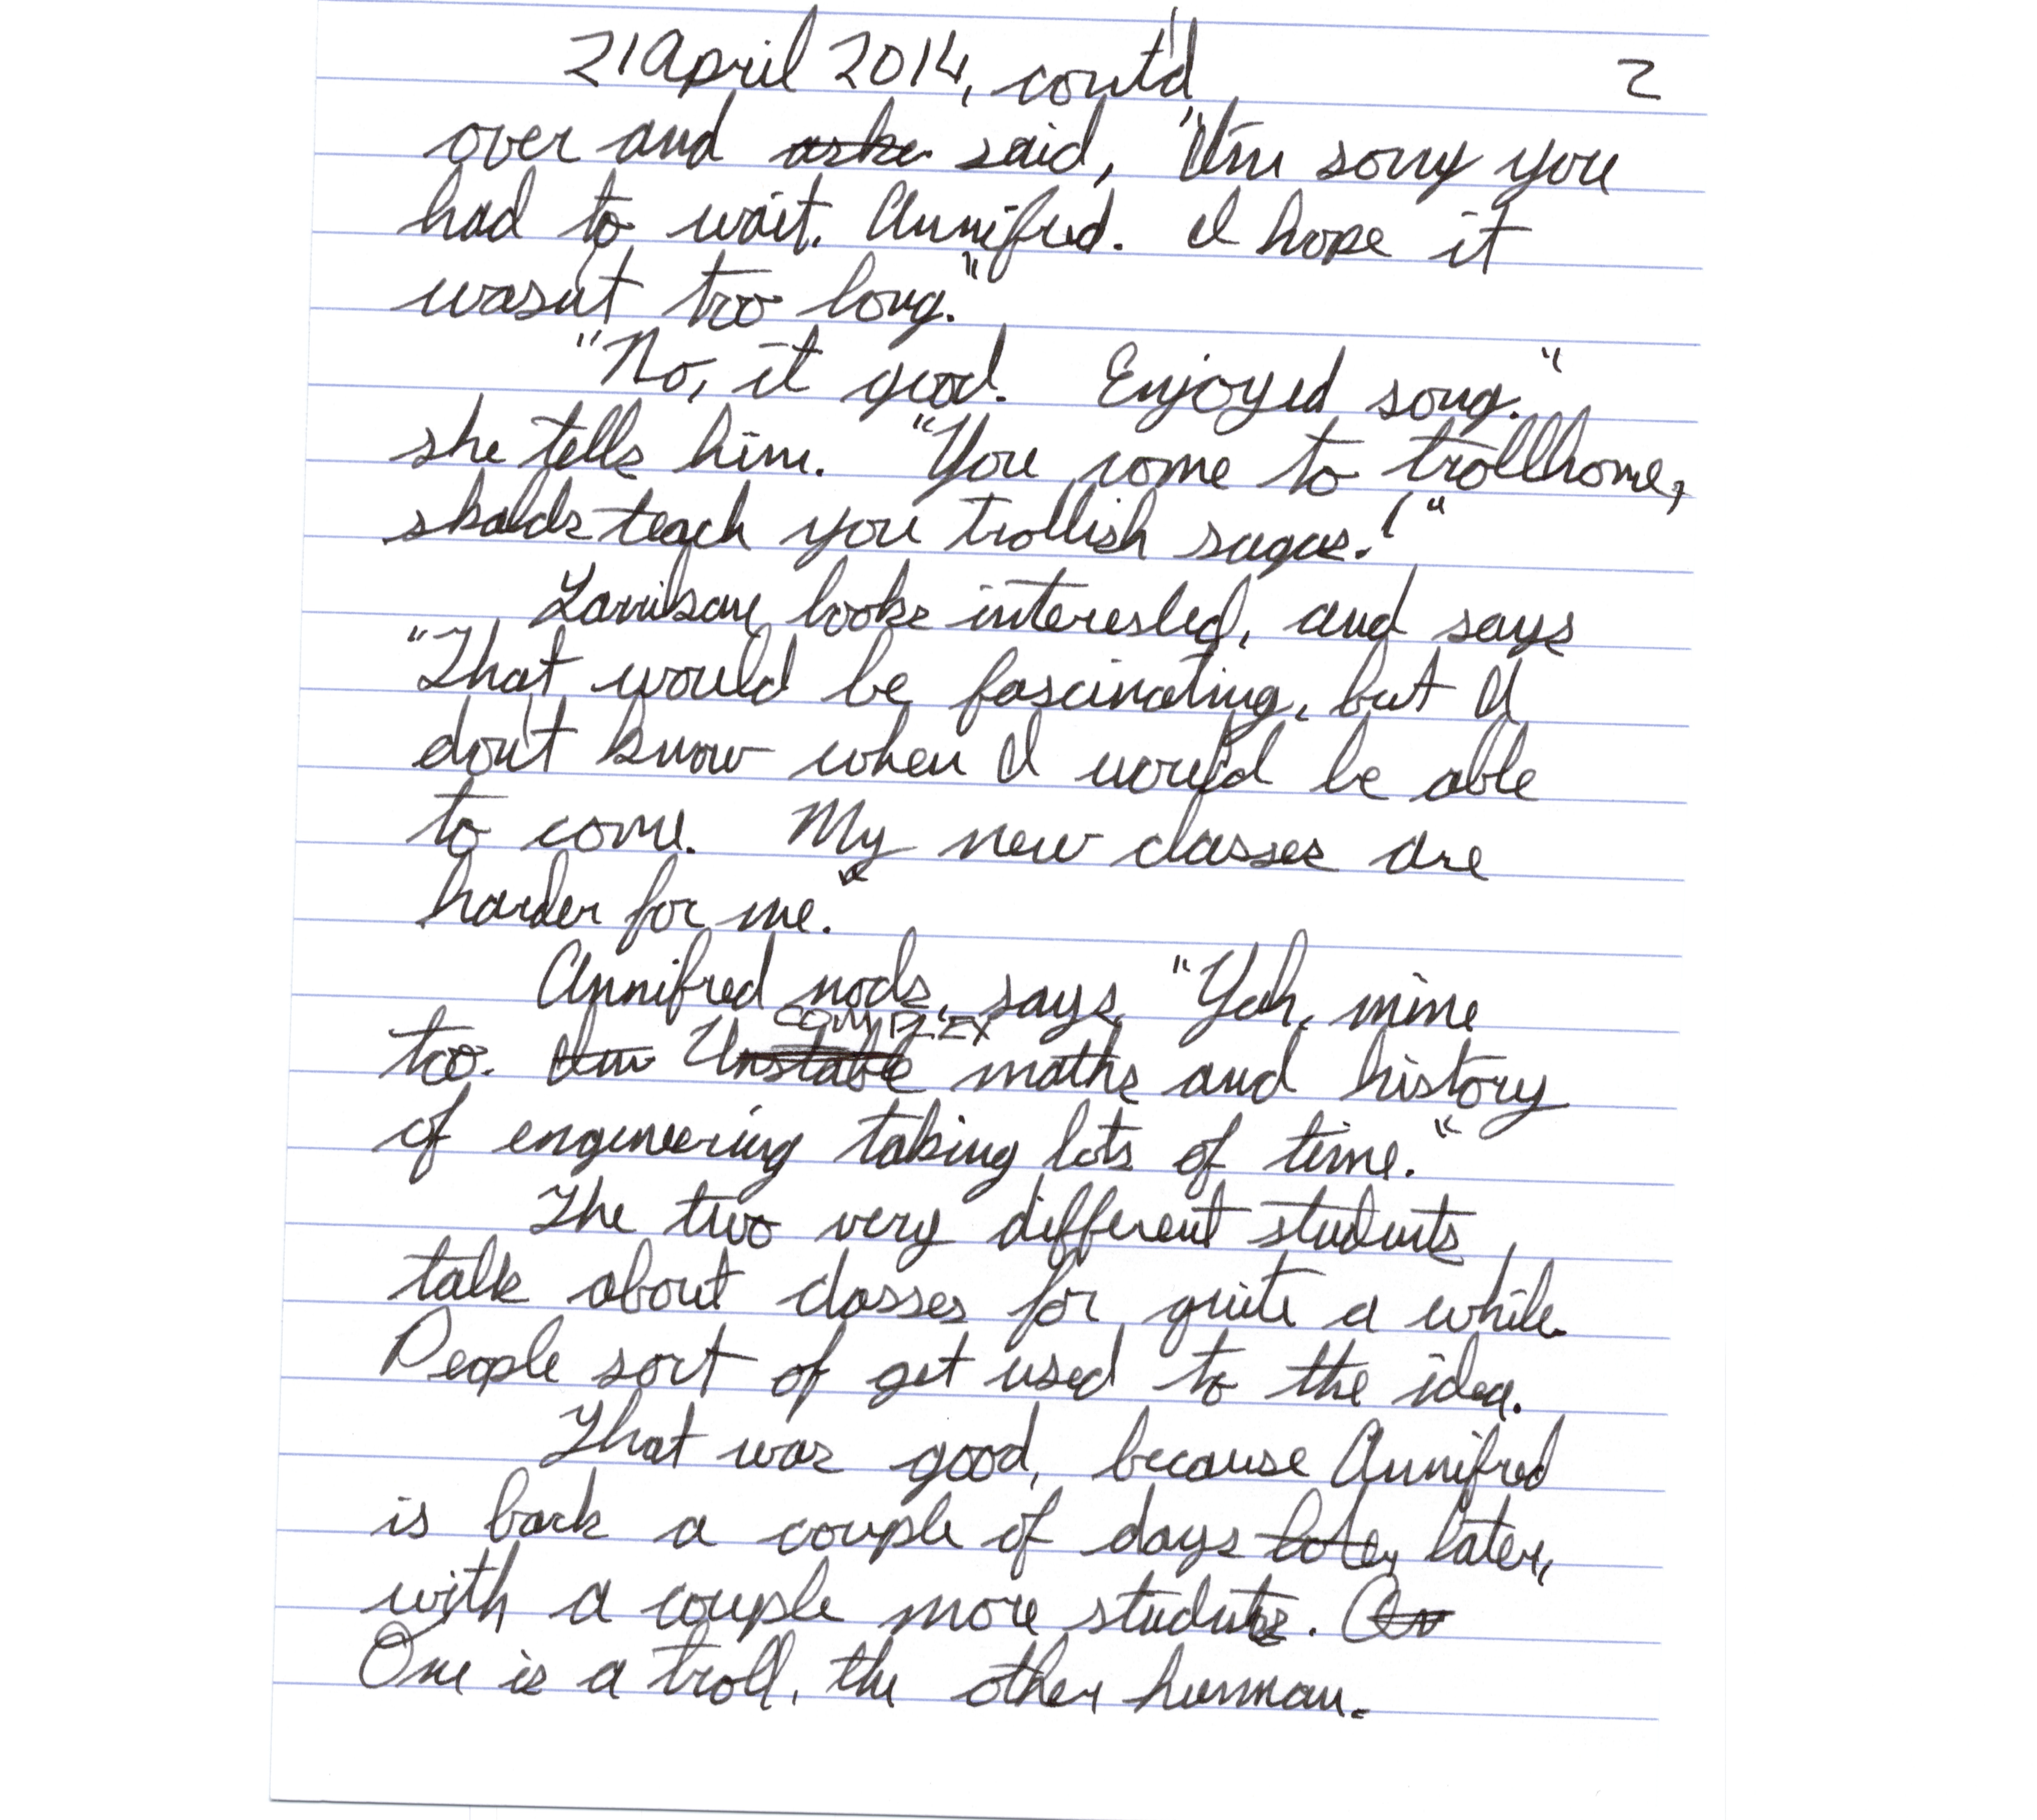 21 April 2014, cont'd 2
over and aske said, "I'm sorry you
had to wait, Annifred. I hope it
wasn't too long."
"No, it good. Enjoyed song."
she tells him. "You come to trollhome,
skalds teach you trollish sagas!"
looks interested, and says
"That would be fascinating, but I
don't know when I would be able
to come. My new classes are
harder for me."
Annifred nods, says, "Yah, mine
COMPLEX
too. Unstable maths and history
of engineering taking lots of time."
The two very different students
talk about classes for quite a while.
People sort of get used to the idea.
That was good, because Annifred
is back a couple of days later,
with a couple more students.
One is a troll, the other human.